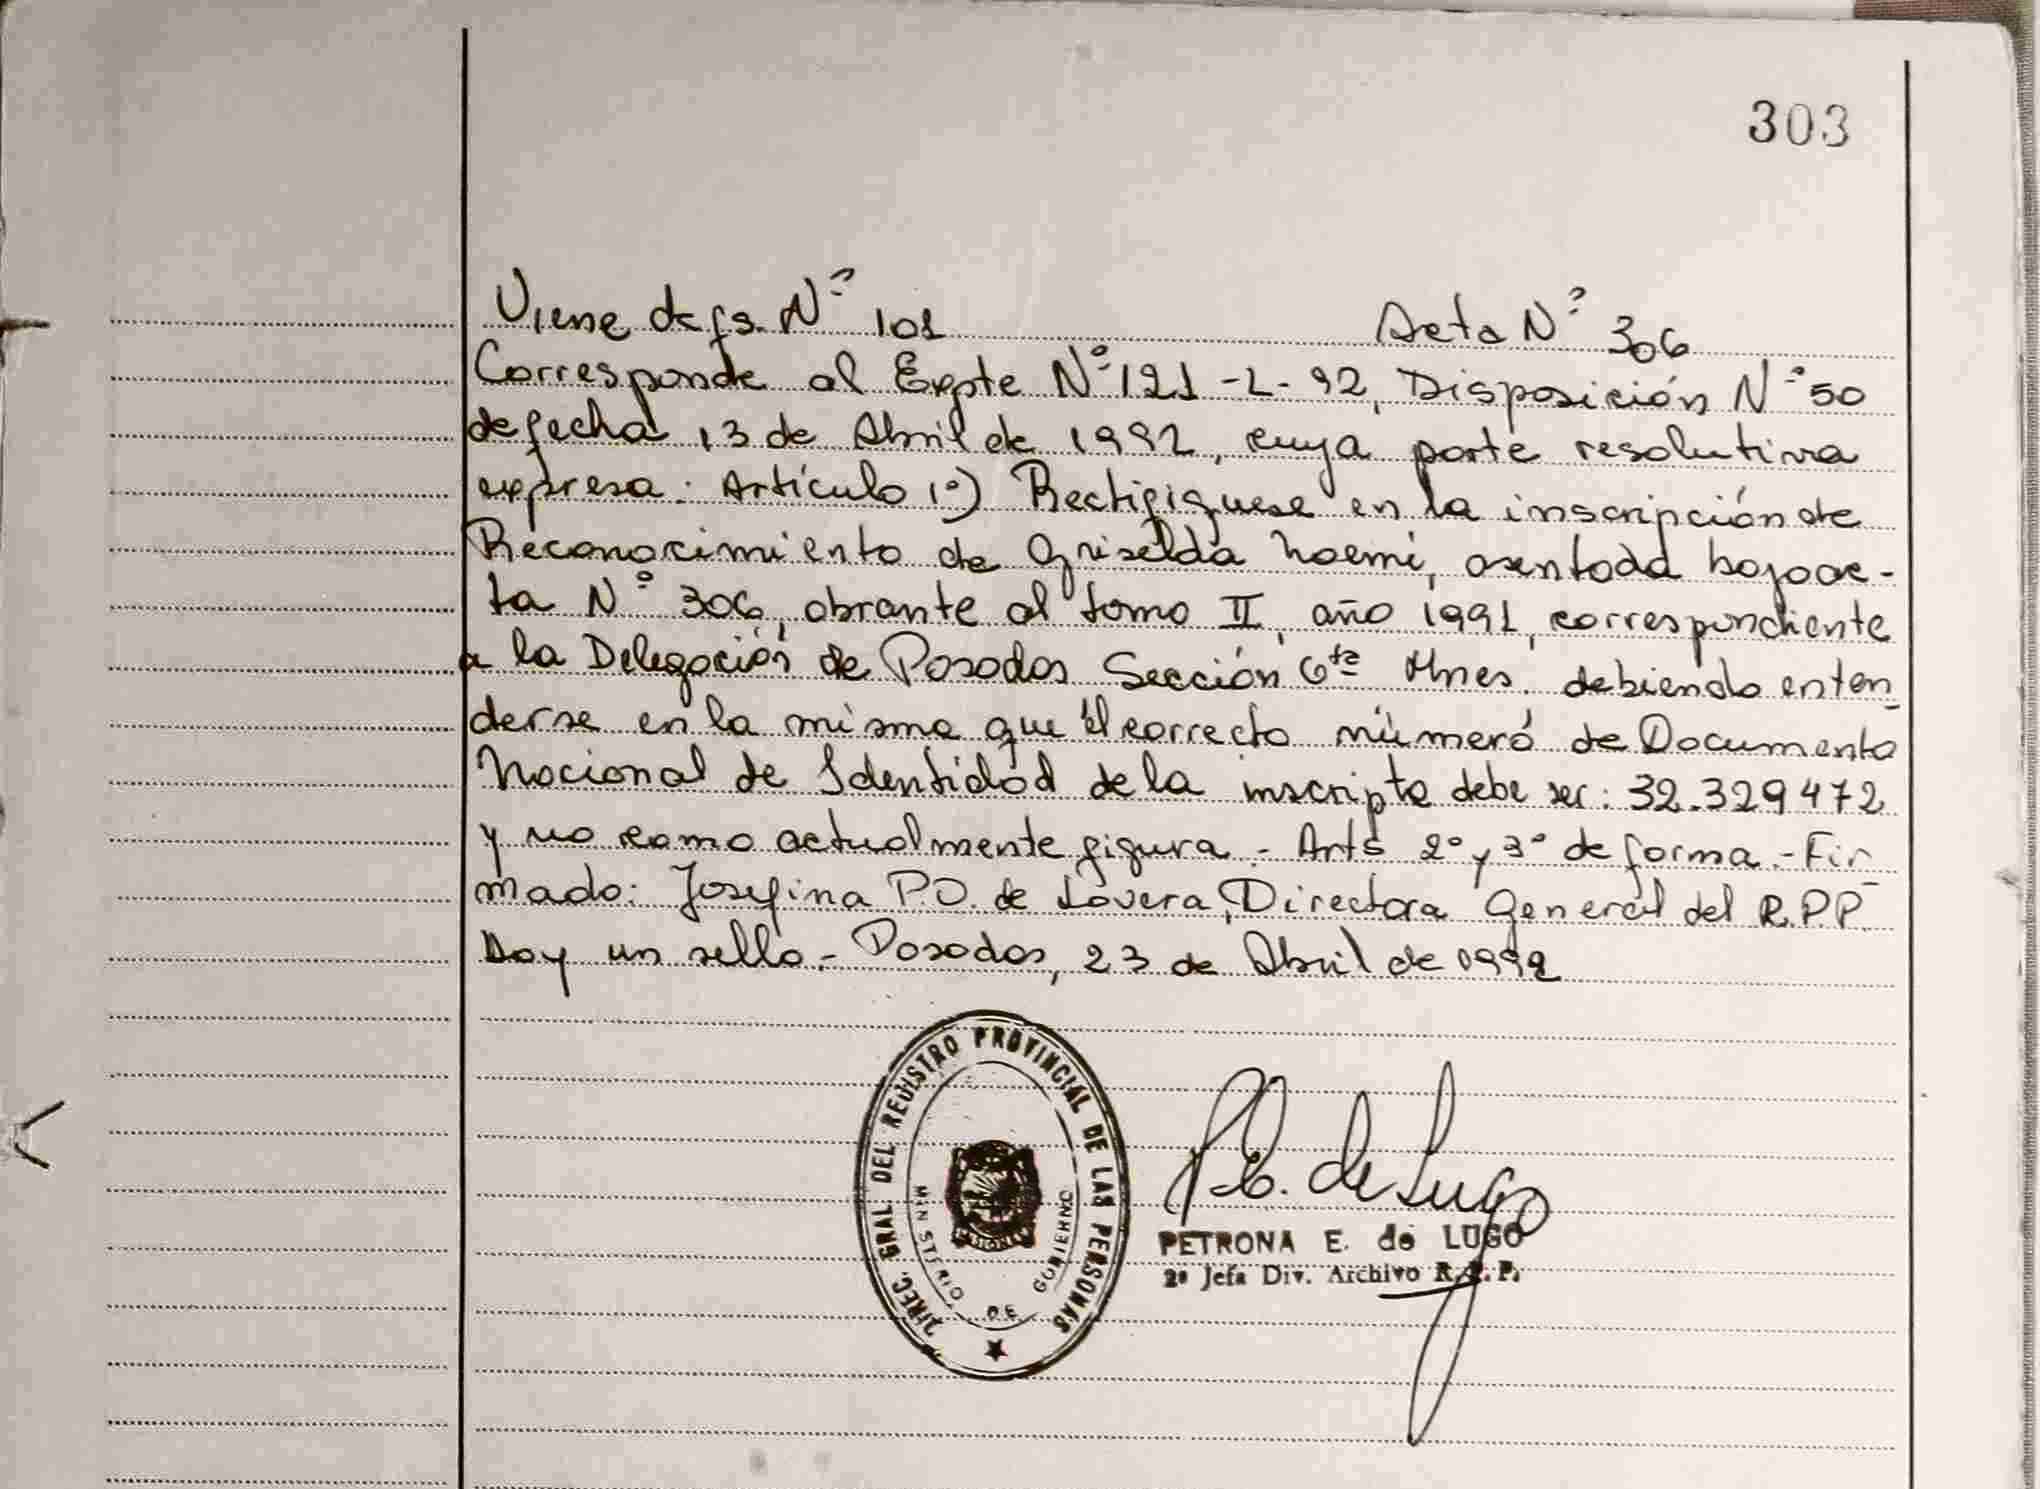 303
Viene de fs. Nº 101 Acta Nº 306
Corresponde al Expte Nº 121-L-92, Disposición Nº 50
de fecha 13 de Abril de 1992, cuya parte resolutiva
expresa: Artículo 1º) Rectifiquese en la inscripción de
Reconocimiento de Griselda Noemi, asentada bajo ac-
ta Nº 306, obrante al tomo II, año 1991, correspondiente
a la Delegación de Posadas Sección 6ta Mnes. debiendo enten
derse en la misma que el correcto número de Documento
Nacional de Identidad de la inscripta debe ser: 32.329472
y no como actualmente figura.- Arts 2º y 3º de forma.- Fir
mado: Josefina P.O. de Lovera, Directora General del R.P.P.
Doy un sello.- Posadas, 23 de Abril de 1992
DIREC. GRAL DEL REGISTRO PROVINCIAL DE LAS PERSONAS
MINISTERIO DE GOBIERNO
MISIONES
P.E. de Lugo
PETRONA E. de LUGO
2ª Jefa Div. Archivo R.P.P.